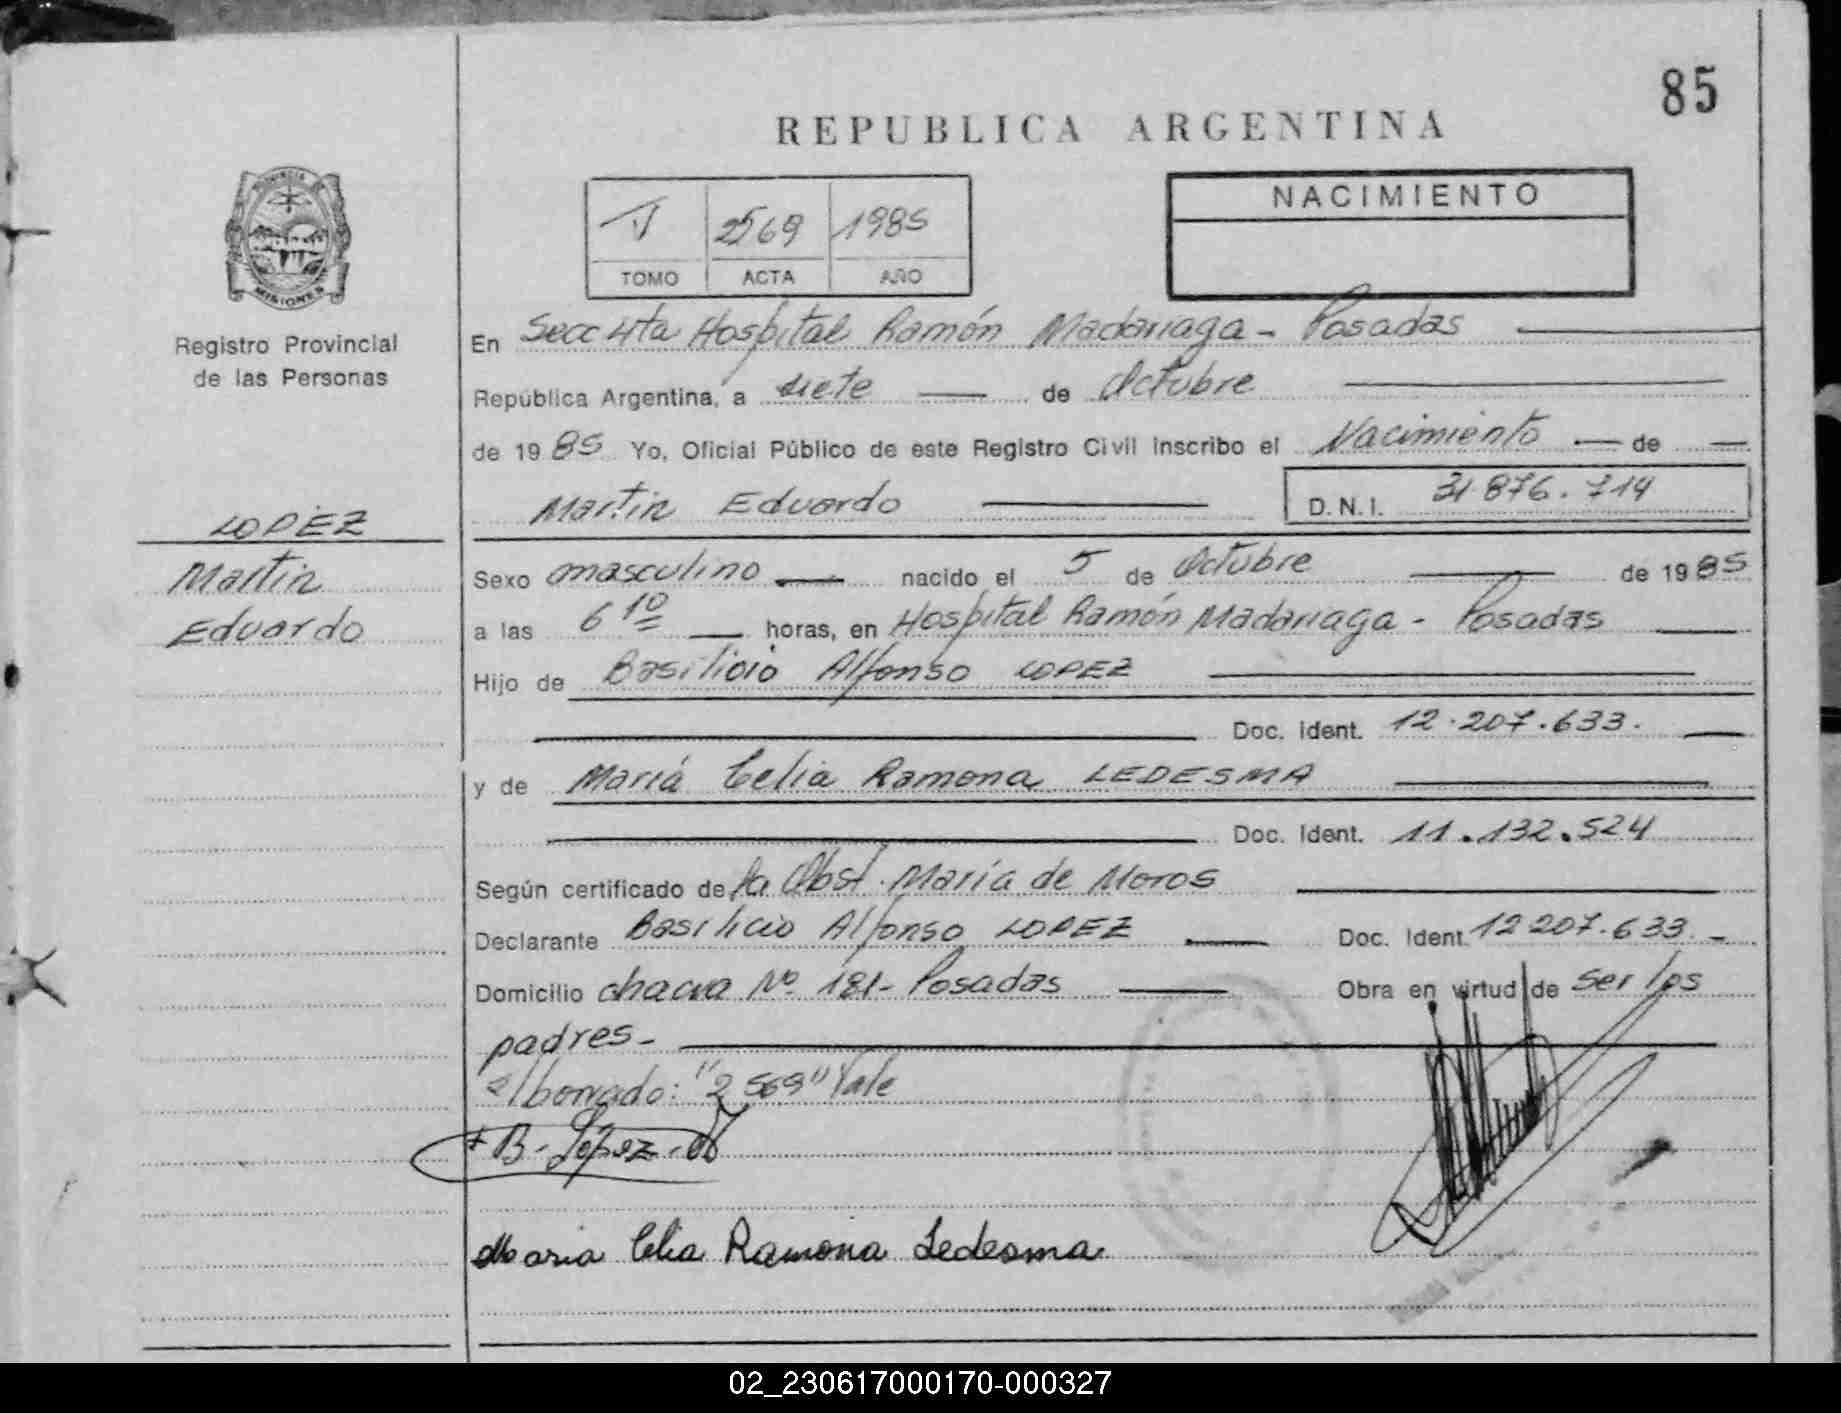 85
REPUBLICA ARGENTINA
PROVINCIA DE
MISIONES
Registro Provincial
de las Personas
V 2569 1985
TOMO ACTA AÑO
NACIMIENTO
En Secc 4ta Hospital Ramón Madariaga - Posadas
República Argentina, a siete de Octubre
de 1985 Yo, Oficial Público de este Registro Civil inscribo el Nacimiento de
Martin Eduardo D.N.I. 31.876.714
LOPEZ
Martin
Eduardo
Sexo masculino nacido el 5 de Octubre de 1985
a las 6 10 horas, en Hospital Ramón Madariaga - Posadas
Hijo de Basilicio Alfonso LOPEZ
Doc. Ident. 12.207.633.
y de Mariá Celia Ramona LEDESMA
Doc. Ident. 11.132.524
Según certificado de la Obst. María de Moros
Declarante Basilicio Alfonso LOPEZ Doc. Ident. 12 207.633.
Domicilio chacra Nº 181 - Posadas Obra en virtud de ser los
padres -
el borrado: "2569" Vale
B - López -
Maria Celia Ramona Ledesma
02_230617000170-000327